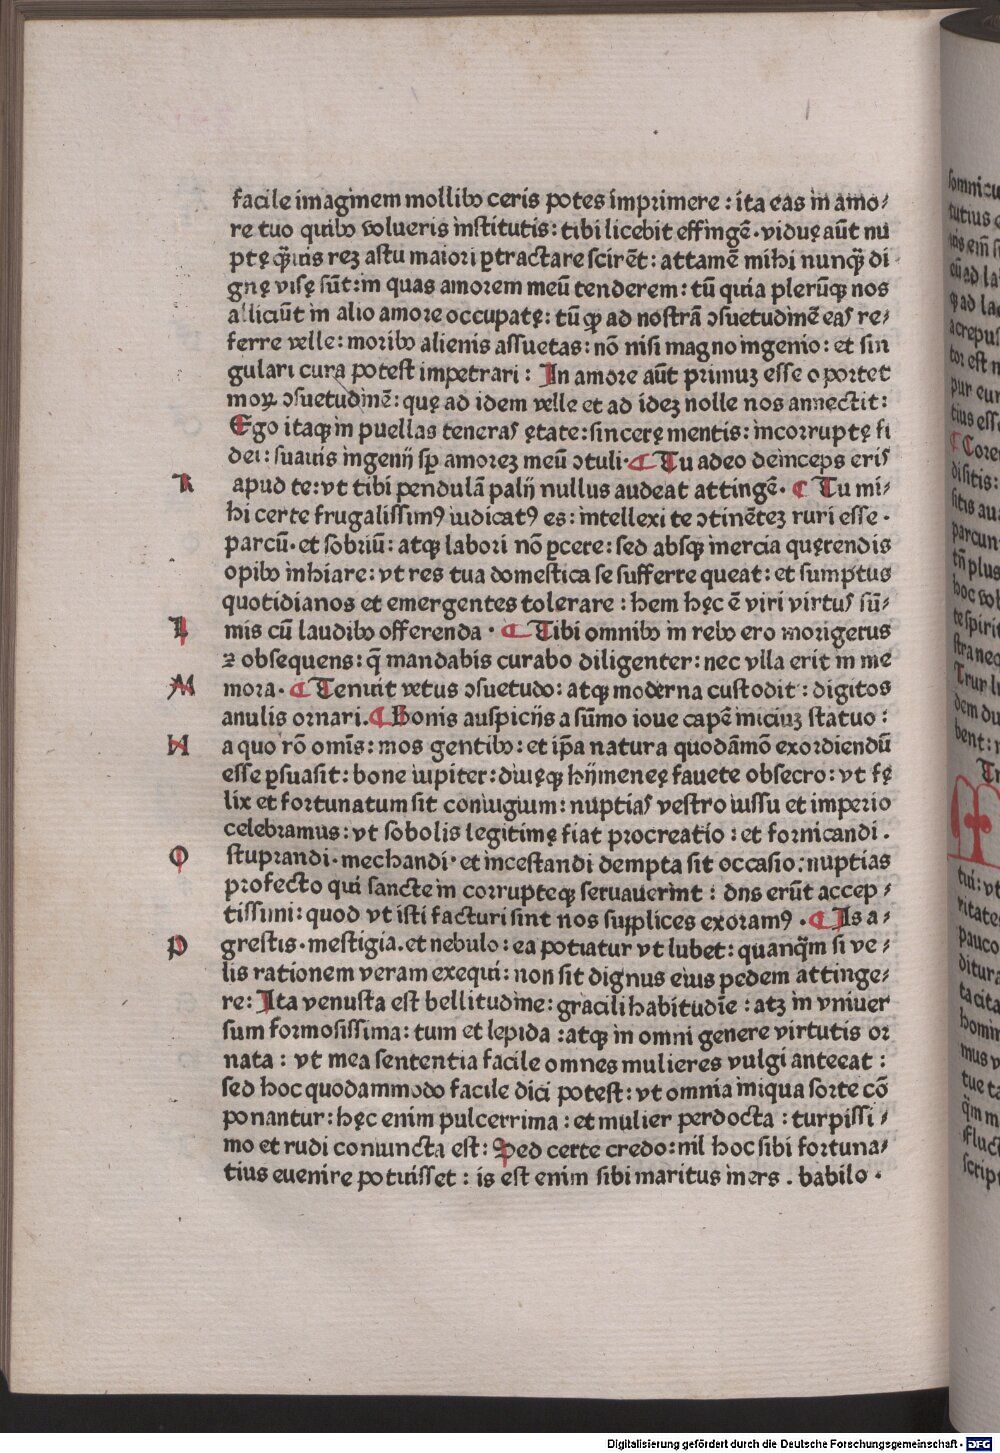 facile imaginem mollibꝰ ceris potes imprimere : ita eas in amo⸗
re tuo quibꝰ volueris institutis : tibi licebit effingē · viduę aūt nu
ptę q̄uis reȝ astu maiori ꝑtractare scirēt : attamē mihi nunq̄ di
gnę visę sūt : in quas amorem meū tenderem : tū quia plerūqꝫ nos
alliciūt in alio amore occupatę : tū ꝙ ad nostrā ↄsuetudinē eas re⸗
ferre velle : moribꝰ alienis assuetas : nō nisi magno ingenio : et sin
gulari cura potest impetrari : In amore aūt primuȝ esse oportet
moꝝ ↄsuetudinē : quę ad idem velle et ad ideȝ nolle nos annectit :
Ego itaqꝫ in puellas teneras ętate : sincerę mentis : incorruptę fi
dei : suauis ingenij sꝑ amoreȝ meū ↄtuli · ¶ Tu adeo deinceps eris
R apud te : vt tibi pendulā palij nullus audeat attingē · ¶ Tu mi⸗
hi certe frugalissimꝰ iudicatꝰ es : intellexi te ↄtinēteȝ ruri esse ·
parcū · et sobriū : atqꝫ labori nō ꝑcere : sed absqꝫ inercia quęrendis
opibꝰ inhiare : vt res tua domestica se sufferre queat : et sumptus
quotidianos et emergentes tolerare : hem hęc ē viri virtus sū⸗
L mis cū laudibꝰ offerenda · ¶ Tibi omnibꝰ in rebꝰ ero morigerus
ꝛ obsequens : q̄ mandabis curabo diligenter : nec vlla erit in me
M mora · ¶ Tenuit vetus ↄsuetudo : atqꝫ moderna custodit : digitos
anulis ornari . ¶ Bonis auspicijs a sūmo ioue capē iniciuȝ statuo :
N a quo rō omīs : mos gentibꝰ : et ip̄a natura quodāmō exordiendū
esse ꝑsuasit : bone iupiter : diuęqꝫ hijmeneę fauete obsecro : vt fę
lix et fortunatum sit coniugium : nuptias vestro iussu et imperio
celebramus : vt sobolis legitimę fiat procreatio : et fornicandi .
O stuprandi · mechandi · et incestandi dempta sit occasio : nuptias
profecto qui sancte in corrupteqꝫ seruauerint : dn̄s erūt accep ⸗
tissimi : quod vt isti facturi sint nos supplices exoramꝰ · ¶ Is a ⸗
P grestis · mestigia . et nebulo : ea potiatur vt lubet : quanq̄m si ve ⸗
lis rationem veram exequi : non sit dignus eius pedem attinge⸗
re : Ita venusta est bellitudine : gracili habitudīe : atȝ in vniuer
sum formosissima : tum et lepida : atqꝫ in omni genere virtutis or
nata : vt mea sententia facile omnes mulieres vulgi anteeat :
sed hoc quodammodo facile dici potest : vt omnia iniqua sorte cō
ponantur : hęc enim pulcerrima : et mulier perdocta : turpissi ⸗
mo et rudi coniuncta est : Sed certe credo : nil hoc sibi fortuna⸗
tius euenire potuisset : is est enim sibi maritus iners . babilo ·
Digitalisierung gefördert durch die Deutsche Forschungsgemeinschaft - DFG